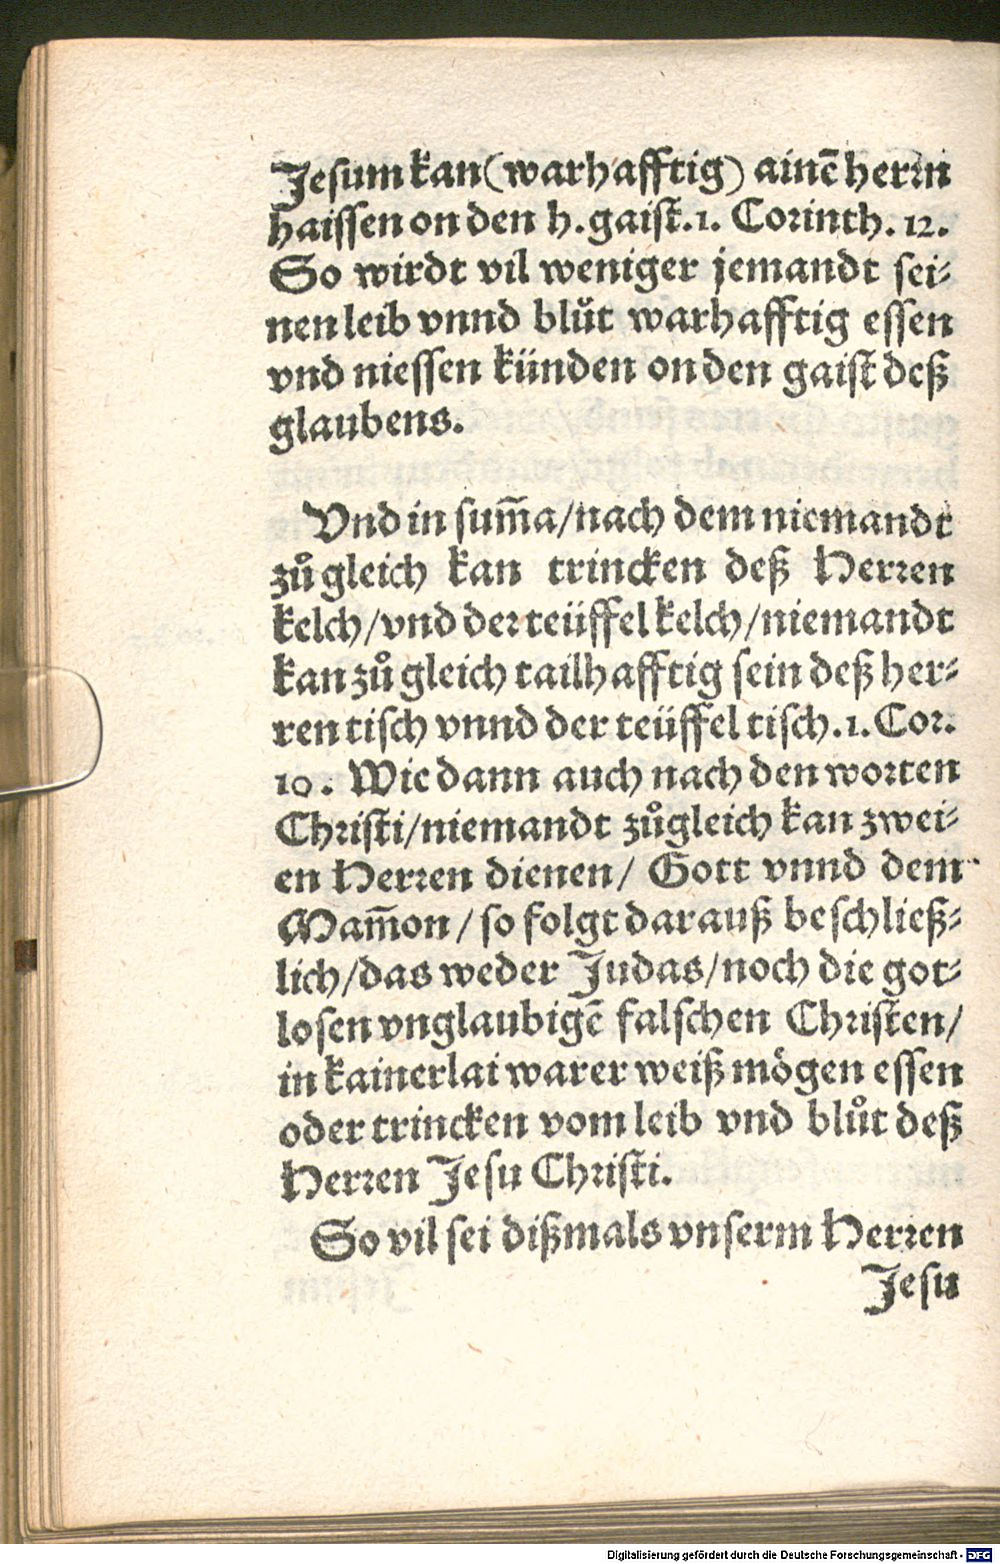 Jesum kan (warhafftig) ainē herrn
haissen on den h. gaist. 1. Corinth. 12.
So wirdt vil weniger jemandt sei-
nen leib vnnd blůt warhafftig essen
vnd niessen künden on den gaist deß
glaubens.
Vnd in sum̄a/nach dem niemandt
zů gleich kan trincken deß Herren
kelch/vnd der teüffel kelch/niemandt
kan zů gleich tailhafftig sein deß her-
ren tisch vnnd der teüffel tisch. 1. Cor.
10. Wie dann auch nach den worten
Christi/niemandt zůgleich kan zwei-
en Herren dienen/ Gott vnnd dem
Mam̄on/so folgt darauß beschließ-
lich/das weder Judas/noch die got-
losen vnglaubigē falschen Christen/
in kainerlai warer weiß mögen essen
oder trincken vom leib vnd blůt deß
Herren Jesu Christi.
So vil sei dißmals vnserm Herren
Jesu
Digitalisierung gefördert durch die Deutsche Forschungsgemeinschaft - DFG